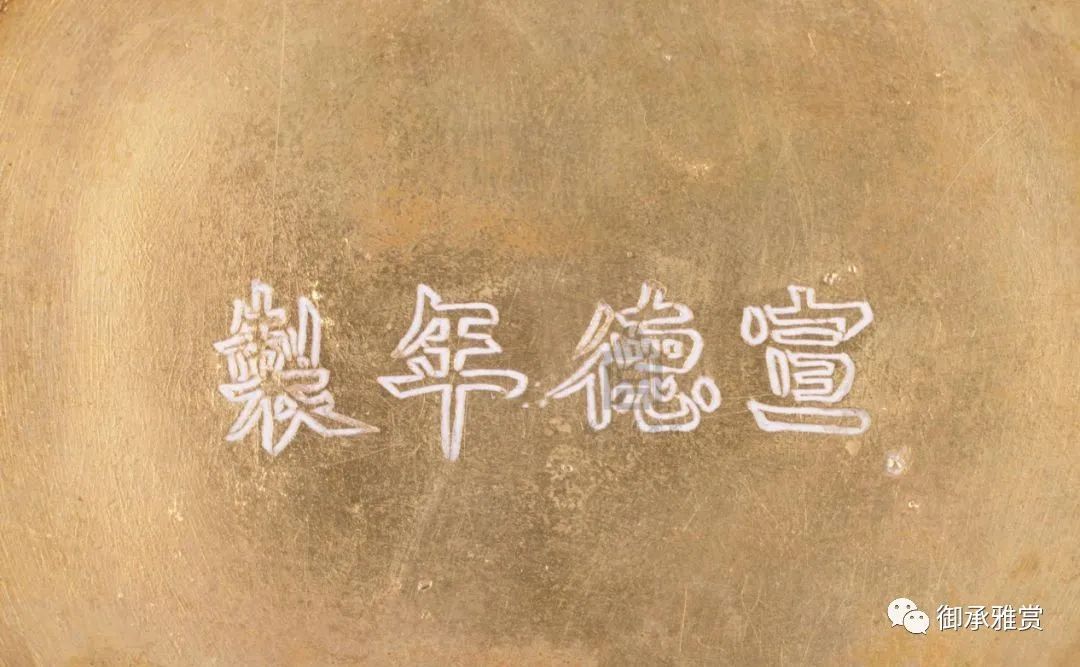 宣德年製
御承雅赏